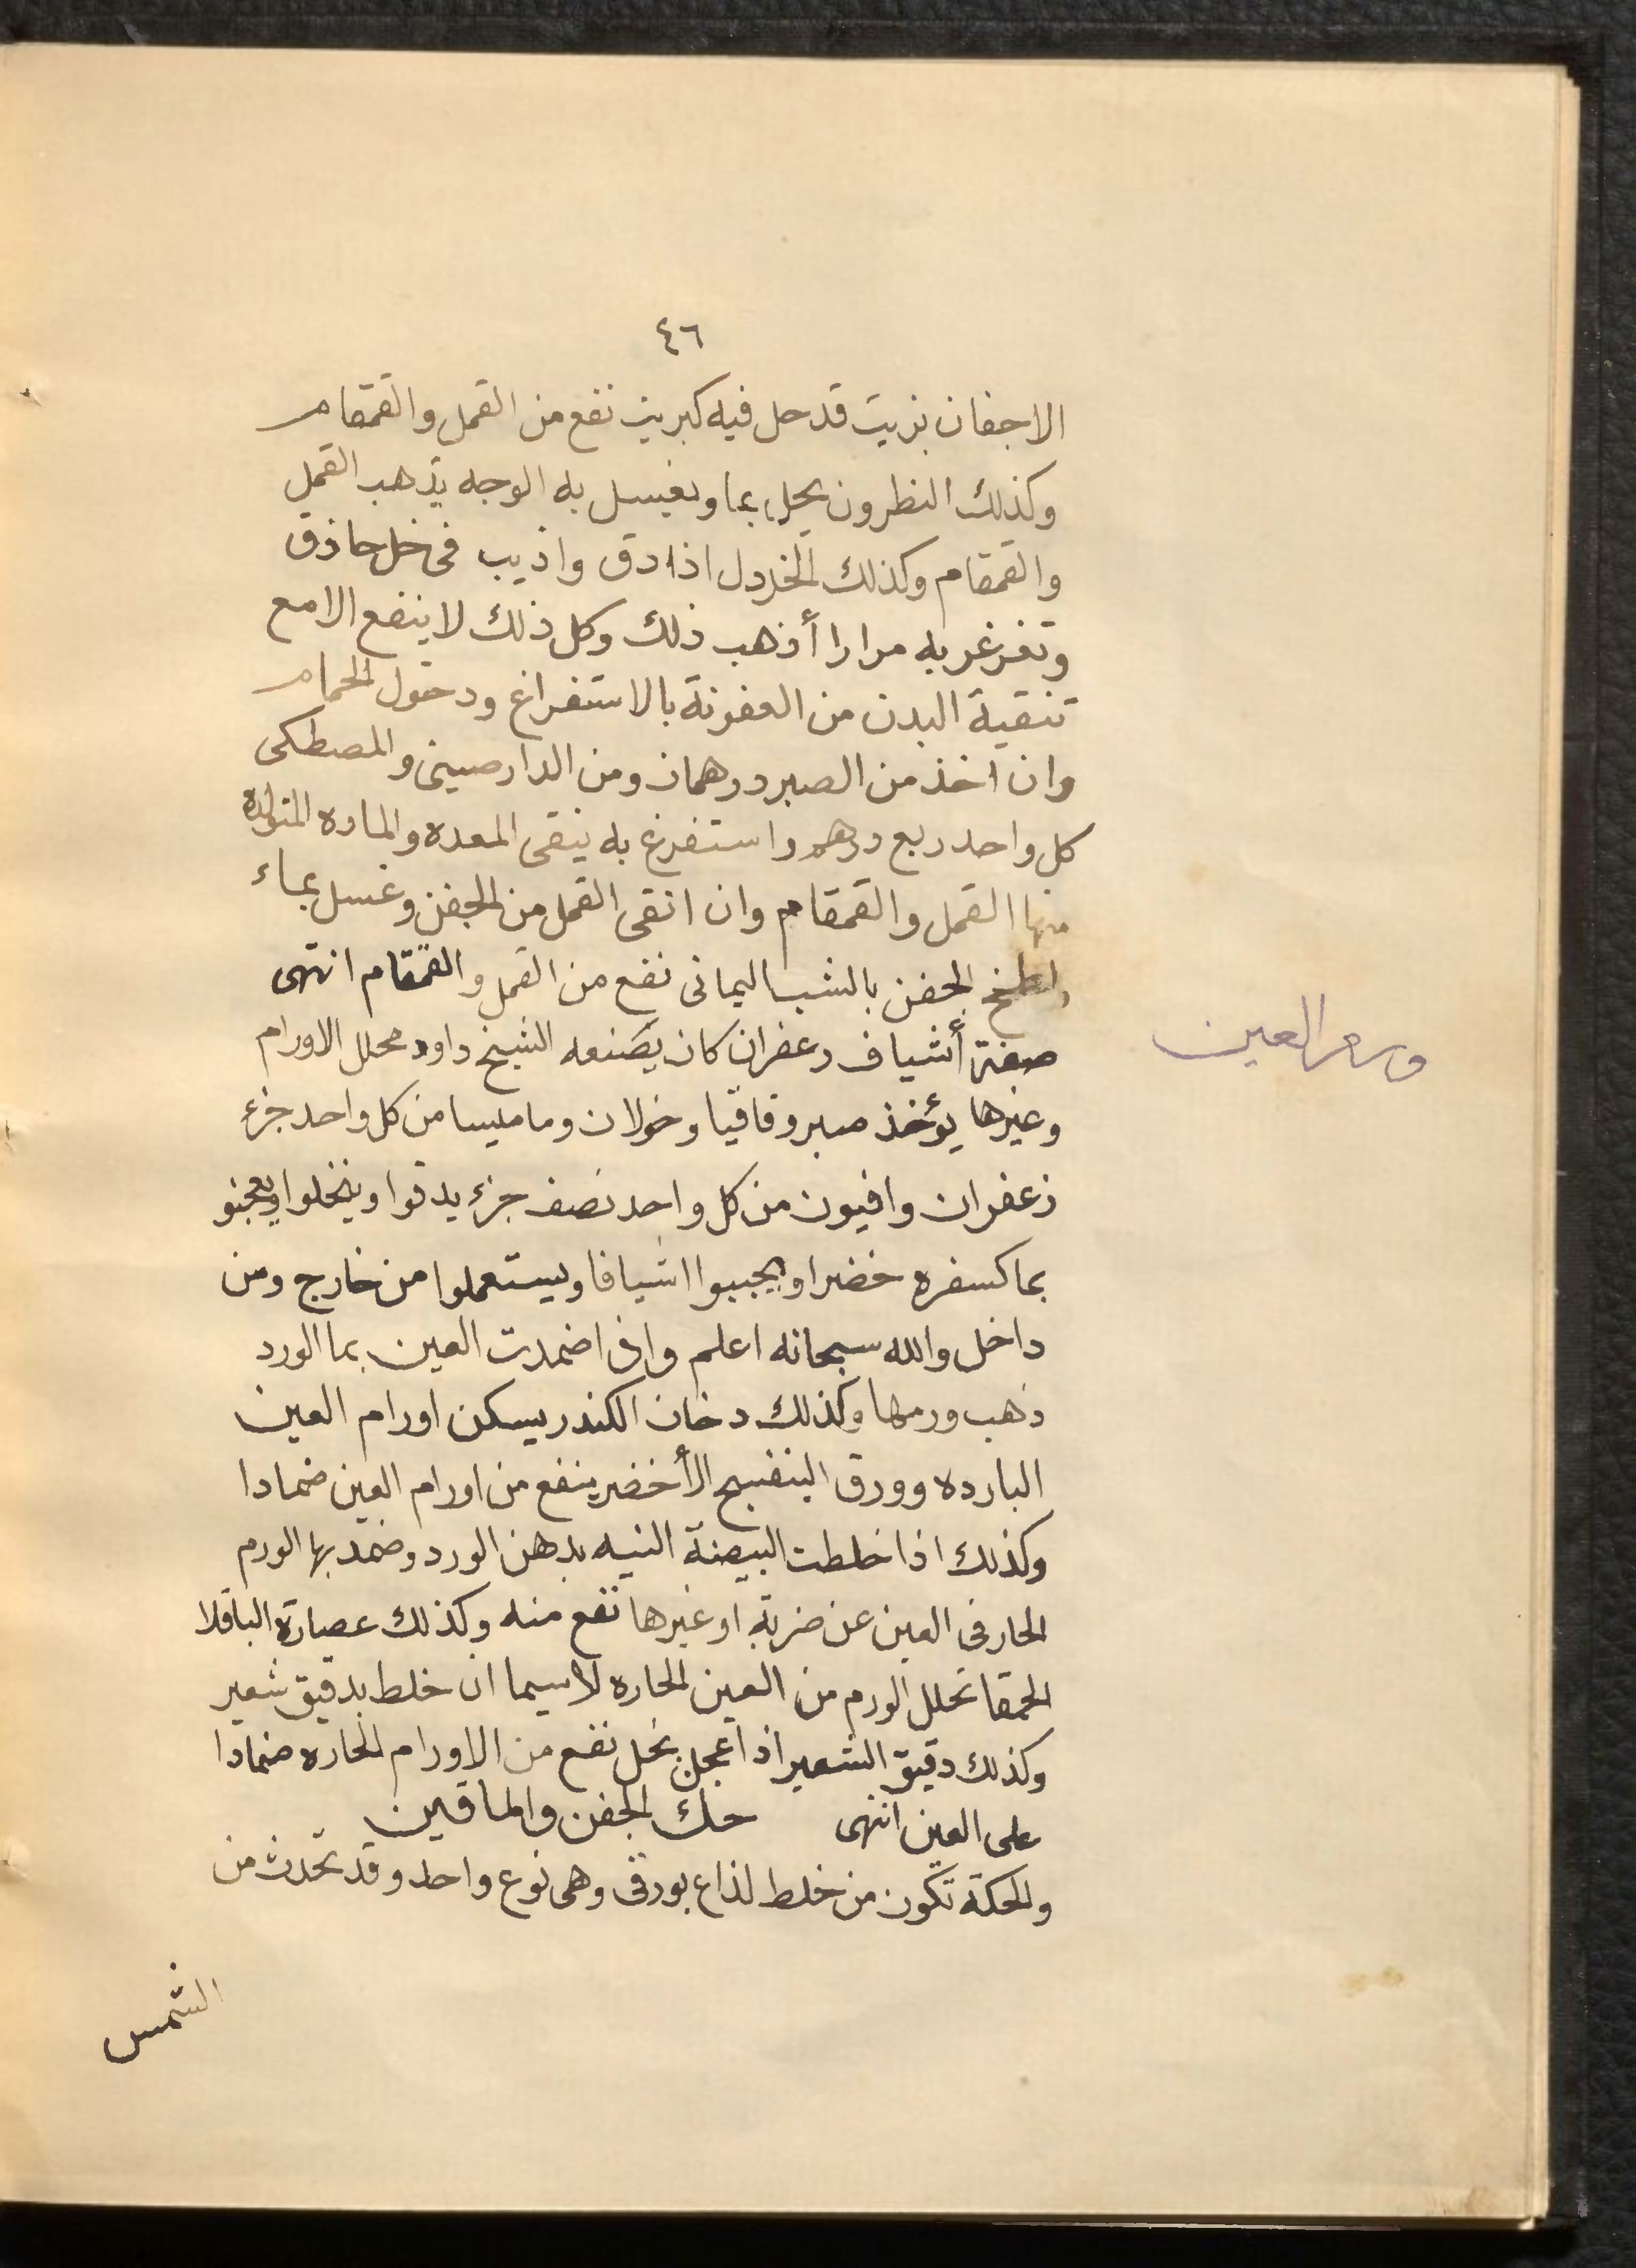 ٤٦
الاجفان بزيت قد حل فيه كبريت نفع من القمل والقمقام
وكذلك النطرون يحل بما ويغسل به الوجه يذهب القمل
والقمقام وكذلك الخردل اذا دق واذيب فى خل حاذق
وتغرغر به مرارا أذهب ذلك وكل ذلك لا ينفع الا مع
تنقية البدن من العفونة بالاستفراغ ودخول الحمام
وان اخذ من الصبر درهمان ومن الدارصينى والمصطكى
كل واحد ربع درهم واستفرغ به ينقى المعده والماده المتولده
منها القمل والقمقام وان انقى القمل من الجفن وغسل بماء
ولطخ الجفن بالشب اليمانى نفع من القمل والقمقام انتهى
صفة أشياف زعفران كان يصنعه الشيخ داود محلل الاورام
وغيرها يؤخذ صبر وقاقيا وخولان وماميسا من كل واحد جزء
زعفران وافيون من كل واحد نصف جزء يدقوا وينخلوا ويعجنو
بما كسفره خضرا ويحببوا اشيافا ويستعملوا من خارج ومن
داخل والله سبحانه اعلم وان اضمدت العين بما الورد
ذهب ورمها وكذلك دخان الكندر يسكن اورام العين
البارده وورق البنفسج الأخضر ينفع من اورام العين ضمادا
وكذلك اذا خلطت البيضة النيه بدهن الورد وضمد بها الورم
الحار فى العين عن ضربة او غيرها نفع منه وكذلك عصارة الباقلا
الحمقا تحلل الورم من العين الحاره لاسيما ان خلط بدقيق شعير
وكذلك دقيق الشعير اذا عجن بخل نفع من الاورام الحاره ضمادا
على العين انتهى حك الجفن والماقين
والحكة تكون من خلط لذاع بورقى وهى نوع واحد وقد تحدث من
الشمس
ورم العين